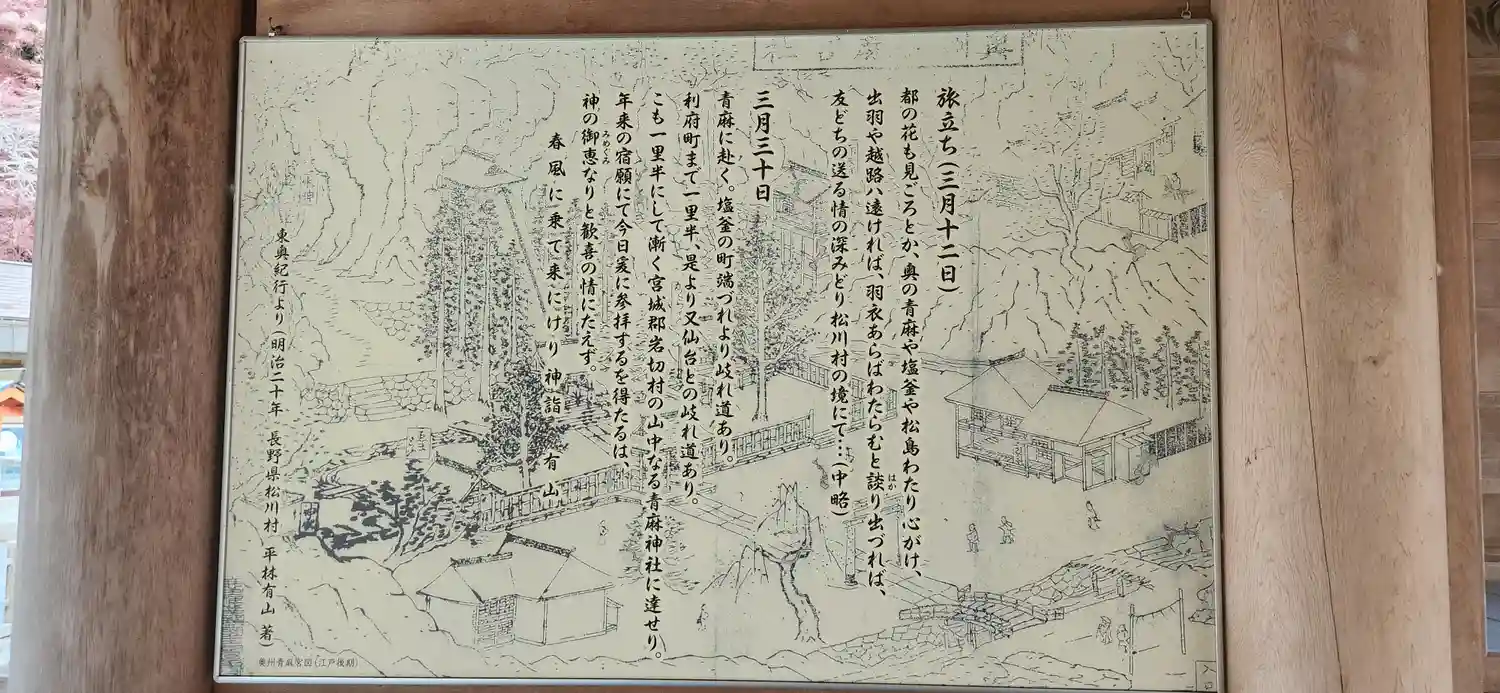 旅立ち(三月十二日)
都の花も見ごろとか、奥の青麻や塩釜や松島わたり心がけ、
出羽や越路ハ遠ければ、羽衣あらばわたらむと談り出づれば、
はか
友どちの送る情の深みどり松川村の境にて…(中略)
三月三十日
青麻に赴く。塩釜の町端づれより岐れ道あり。
利府町まで一里半、是より又仙台との岐れ道あり。
こも一里半にして漸く宮城郡岩切村の山中なる青麻神社に達せり。
年来の宿願にて今日爰に参拝するを得たるは、
神の御恵なりと歓喜の情にたえず。
みめぐみ
春風に乗て来にけり神詣 有山
東奥紀行より(明治二十年 長野県松川村 平林有山 著)
奥州青麻宮図(江戸後期)